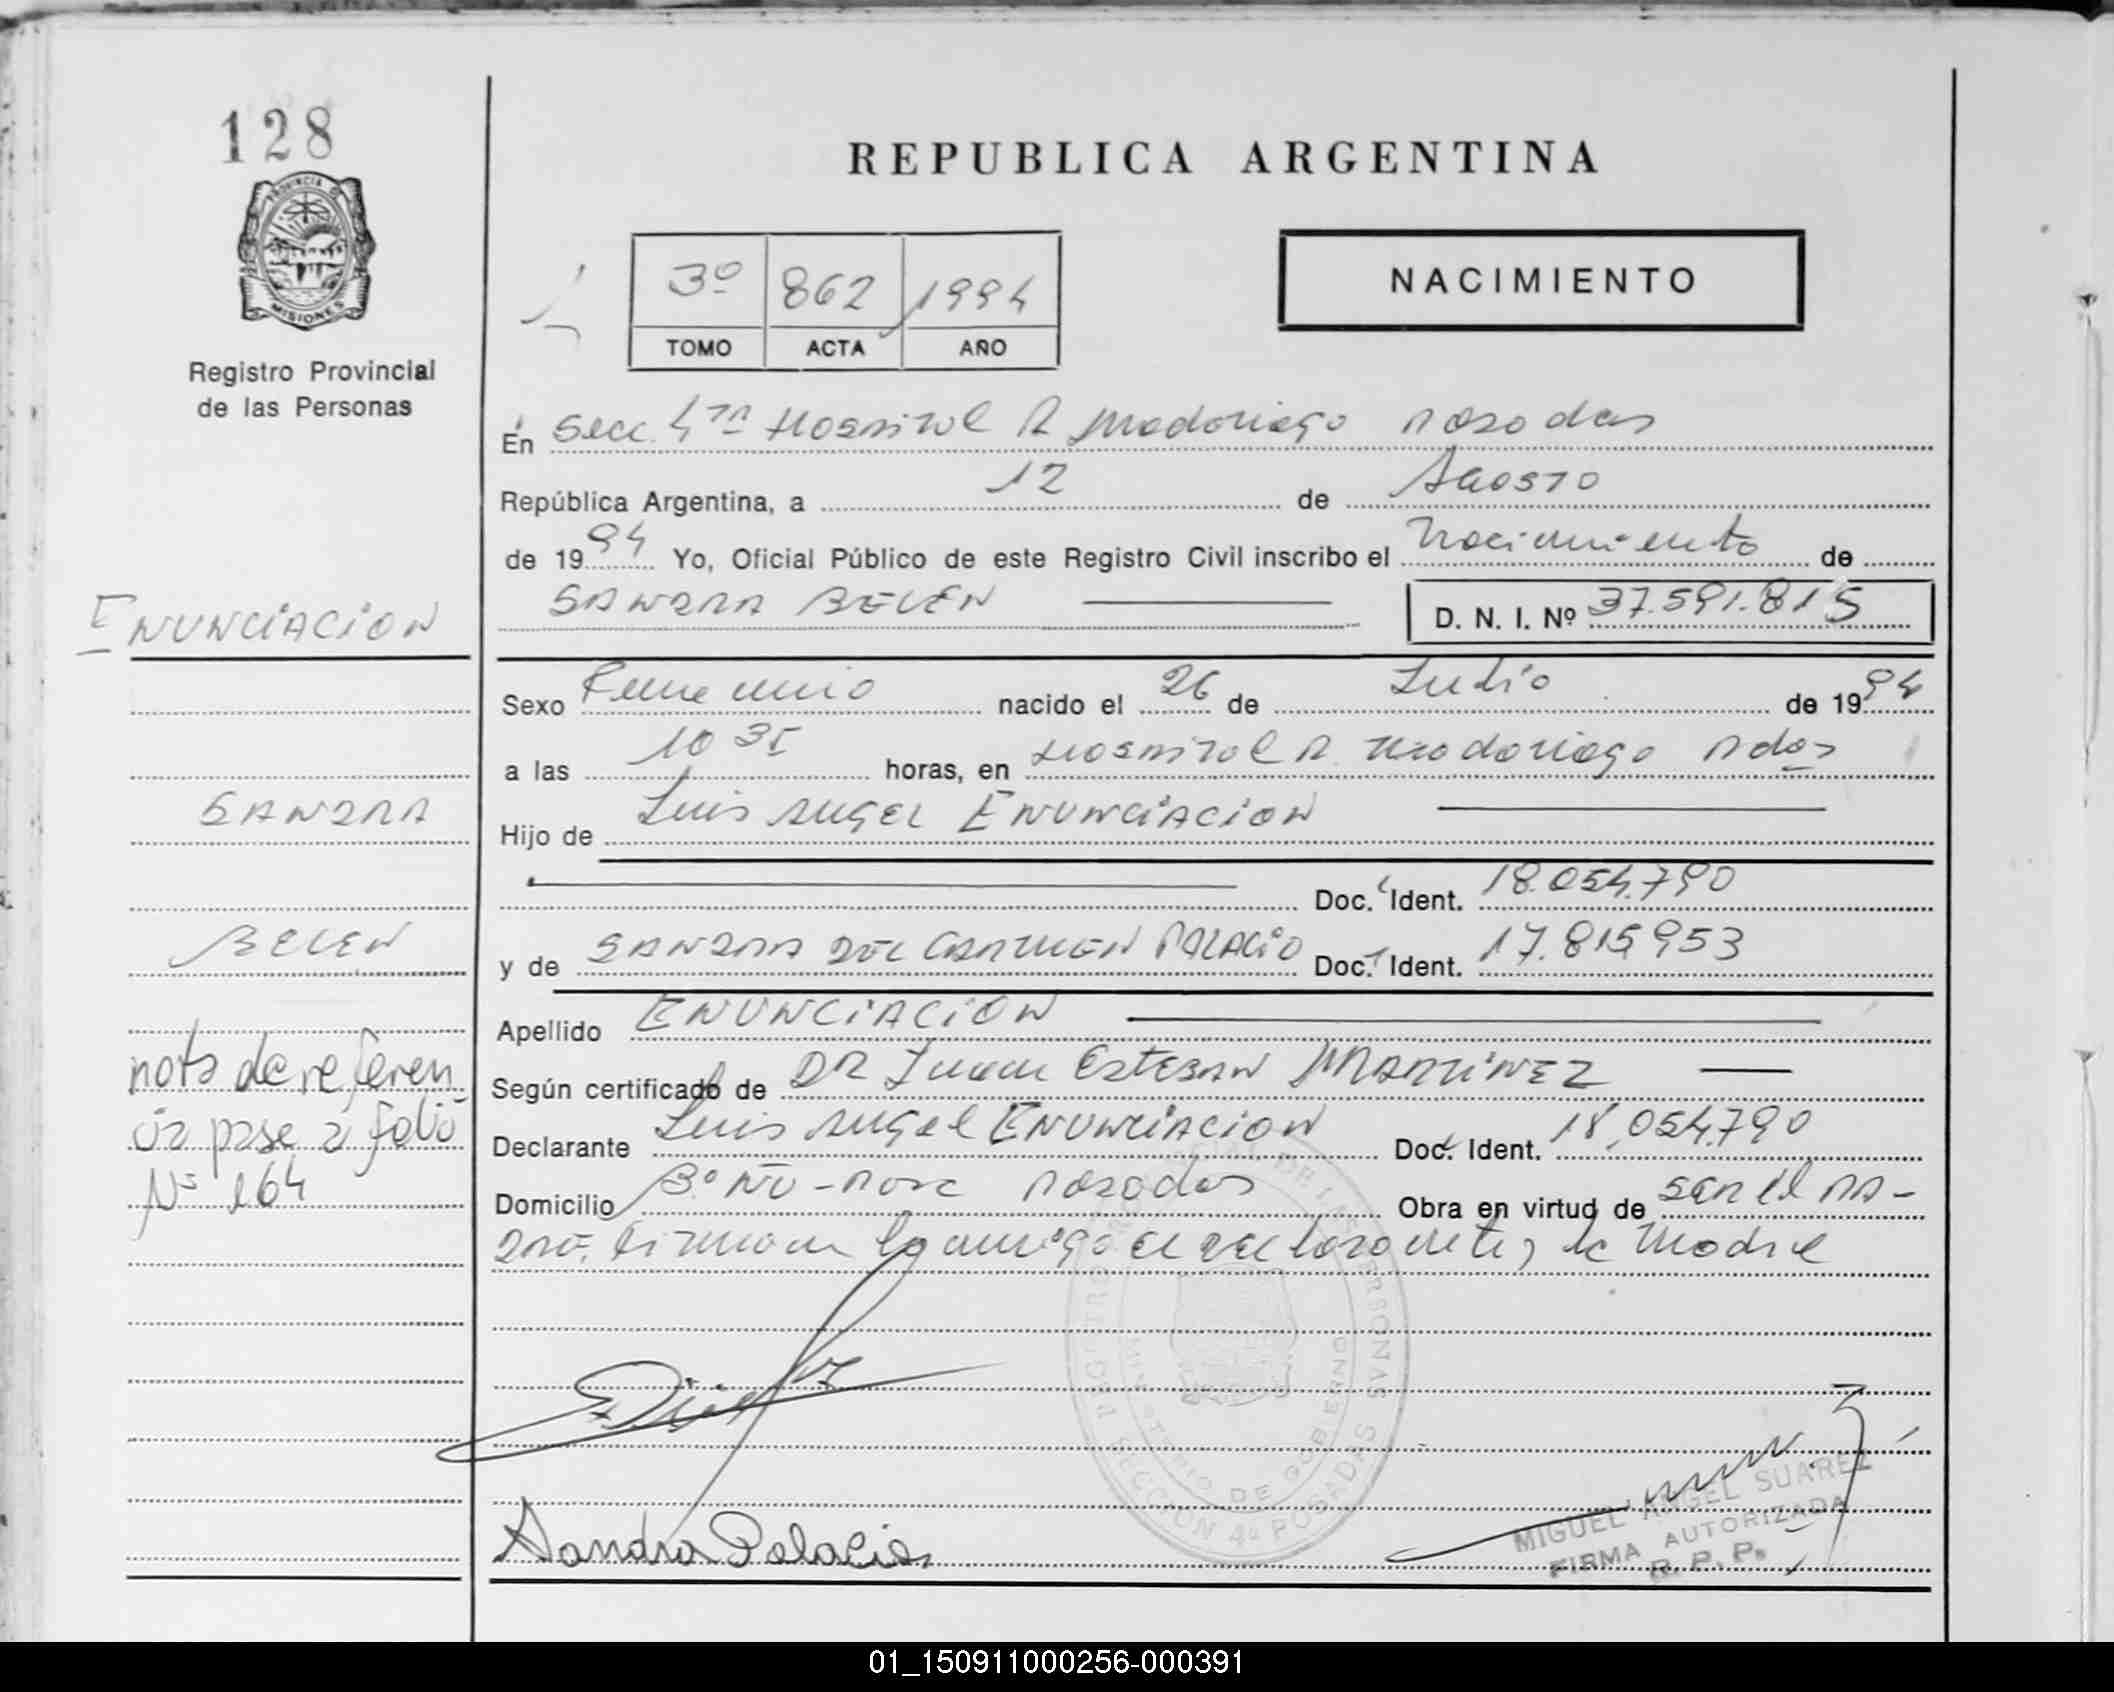 128
PROVINCIA DE
MISIONES
Registro Provincial
de las Personas
REPUBLICA ARGENTINA
NACIMIENTO
3º 862 1994
TOMO ACTA AÑO
En Secc. 4ta Hospital R Madariaga Posadas
República Argentina, a 12 de Agosto
de 1994 Yo, Oficial Público de este Registro Civil inscribo el Nacimiento de
SANDRA BELEN D. N. I. Nº 37.591.815
ENUNCIACION
Sexo Femenino nacido el 26 de Julio de 1994
a las 10 35 horas, en Hospital R. Madariaga Pdas
SANDRA
Hijo de Luis Angel ENUNCIACION
Doc. Ident. 18.054.790
BELEN
y de SANDRA DEL CARMEN PALACIO Doc. Ident. 17.815953
Apellido ENUNCIACION
nota de referen
Según certificado de DR Juan ESTEBAN MARTINEZ
cia pase a folio
Declarante Luis Angel ENUNCIACION Doc. Ident. 18.054.790
Nº 164
Domicilio Posadas Obra en virtud de ser el PA-
DRE. Firman conmigo el declarante y la Madre
REGISTRO PROVINCIAL DE LAS PERSONAS
MINISTERIO DE GOBIERNO
SECCION 4a POSADAS
Sandra Palacio
MIGUEL ANGEL SUAREZ
FIRMA AUTORIZADA
R. P. P.
01_150911000256-000391